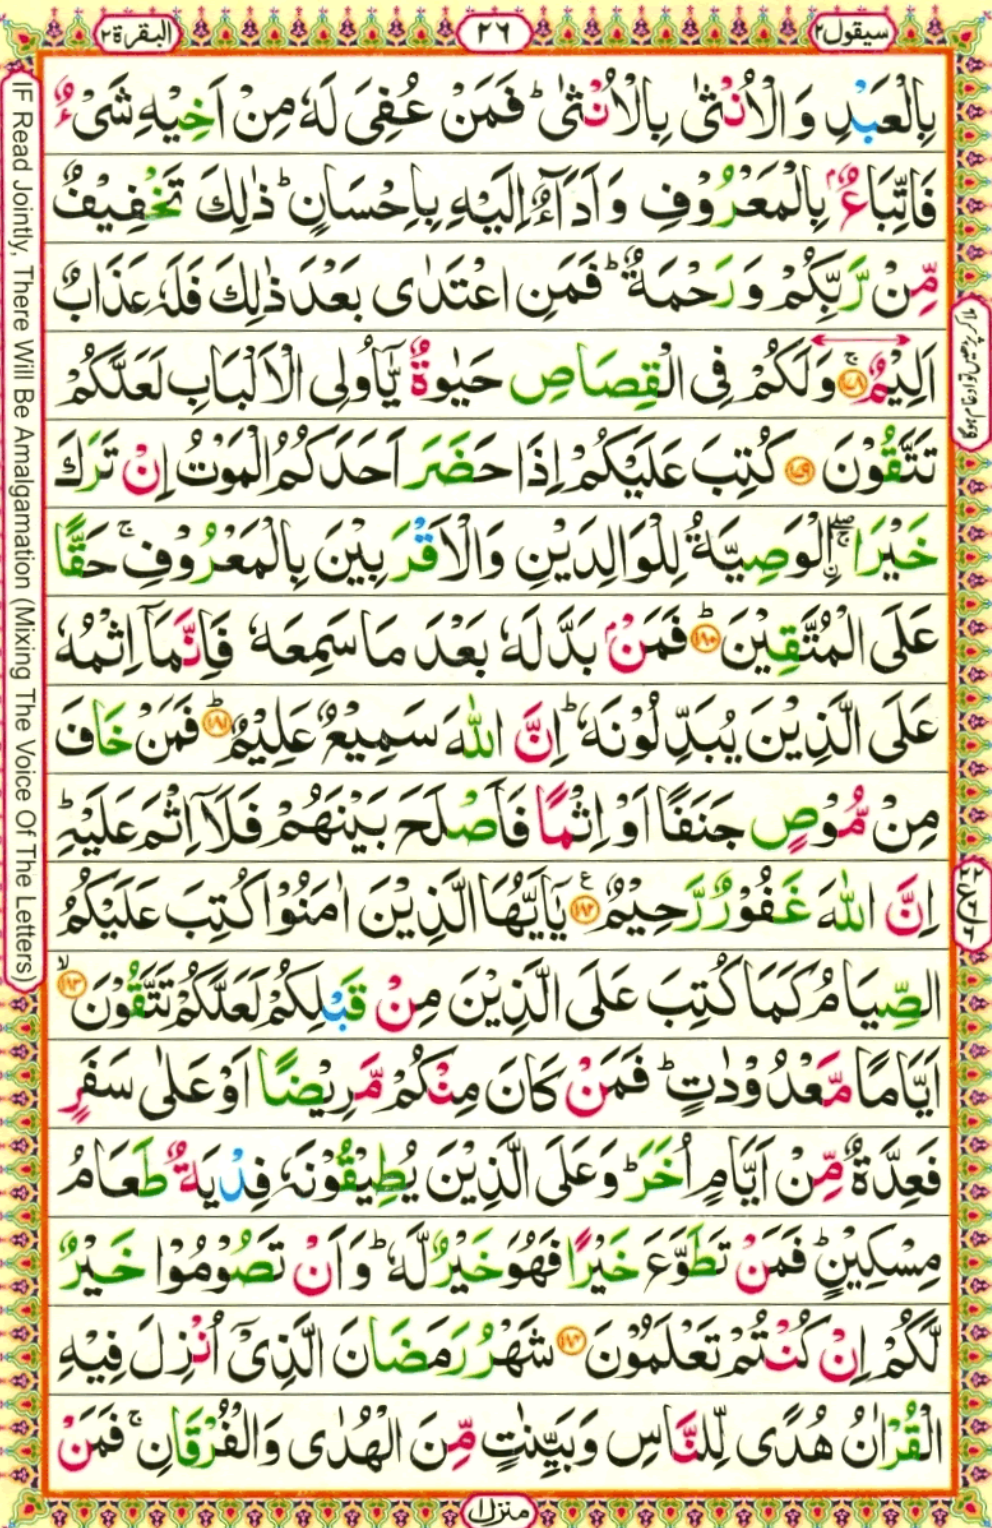 سيقول٢
٢٦
البقرة٢
بِالْعَبْدِ وَالْاُنْثٰى بِالْاُنْثٰىؕ فَمَنْ عُفِىَ لَهٗ مِنْ اَخِيْهِ شَىْءٌ
فَاتِّبَاعٌۢ بِالْمَعْرُوْفِ وَاَدَآءٌ اِلَيْهِ بِاِحْسَانٍؕ ذٰلِكَ تَخْفِيْفٌ
مِّنْ رَّبِّكُمْ وَرَحْمَةٌؕ فَمَنِ اعْتَدٰى بَعْدَ ذٰلِكَ فَلَهٗ عَذَابٌ
اَلِيْمٌۚ‏﴿۱۷۸﴾ وَلَكُمْ فِى الْقِصَاصِ حَيٰوةٌ يّٰٓاُولِى الْاَلْبَابِ لَعَلَّكُمْ
تَتَّقُوْنَ ﴿۱۷۹﴾ كُتِبَ عَلَيْكُمْ اِذَا حَضَرَ اَحَدَكُمُ الْمَوْتُ اِنْ تَرَكَ
خَيْرَا ۖۚ اۨلْوَصِيَّةُ لِلْوَالِدَيْنِ وَالْاَقْرَبِيْنَ بِالْمَعْرُوْفِۚ حَقًّا
عَلَى الْمُتَّقِيْنَؕ ﴿۱۸۰﴾ فَمَنْۢ بَدَّلَهٗ بَعْدَ مَا سَمِعَهٗ فَاِنَّمَآ اِثْمُهٗ
عَلَى الَّذِيْنَ يُبَدِّلُوْنَهٗؕ اِنَّ اللّٰهَ سَمِيْعٌ عَلِيْمٌؕ ﴿۱۸۱﴾ فَمَنْ خَافَ
مِنْ مُّوْصٍ جَنَفًا اَوْ اِثْمًا فَاَصْلَحَ بَيْنَهُمْ فَلَآ اِثْمَ عَلَيْهِؕ
اِنَّ اللّٰهَ غَفُوْرٌ رَّحِيْمٌ ﴿۱۸۲﴾ع يٰٓاَيُّهَا الَّذِيْنَ اٰمَنُوْا كُتِبَ عَلَيْكُمُ
الصِّيَامُ كَمَا كُتِبَ عَلَى الَّذِيْنَ مِنْ قَبْلِكُمْ لَعَلَّكُمْ تَتَّقُوْنَۙ ﴿۱۸۳﴾
اَيَّامًا مَّعْدُوْدٰتٍؕ فَمَنْ كَانَ مِنْكُمْ مَّرِيْضًا اَوْ عَلٰى سَفَرٍ
فَعِدَّةٌ مِّنْ اَيَّامٍ اُخَرَؕ وَعَلَى الَّذِيْنَ يُطِيْقُوْنَهٗ فِدْيَةٌ طَعَامُ
مِسْكِيْنٍؕ فَمَنْ تَطَوَّعَ خَيْرًا فَهُوَ خَيْرٌ لَّهٗؕ وَاَنْ تَصُوْمُوْا خَيْرٌ
لَّكُمْ اِنْ كُنْتُمْ تَعْلَمُوْنَ ﴿۱۸۴﴾ شَهْرُ رَمَضَانَ الَّذِىْٓ اُنْزِلَ فِيْهِ
الْقُرْاٰنُ هُدًى لِّلنَّاسِ وَبَيِّنٰتٍ مِّنَ الْهُدٰى وَالْفُرْقَانِۚ فَمَنْ
منزل١
IF Read Jointly, There Will Be Amalgamation (Mixing The Voice Of The Letters)
ملا کر پڑھیں تو ادغام ہوگا